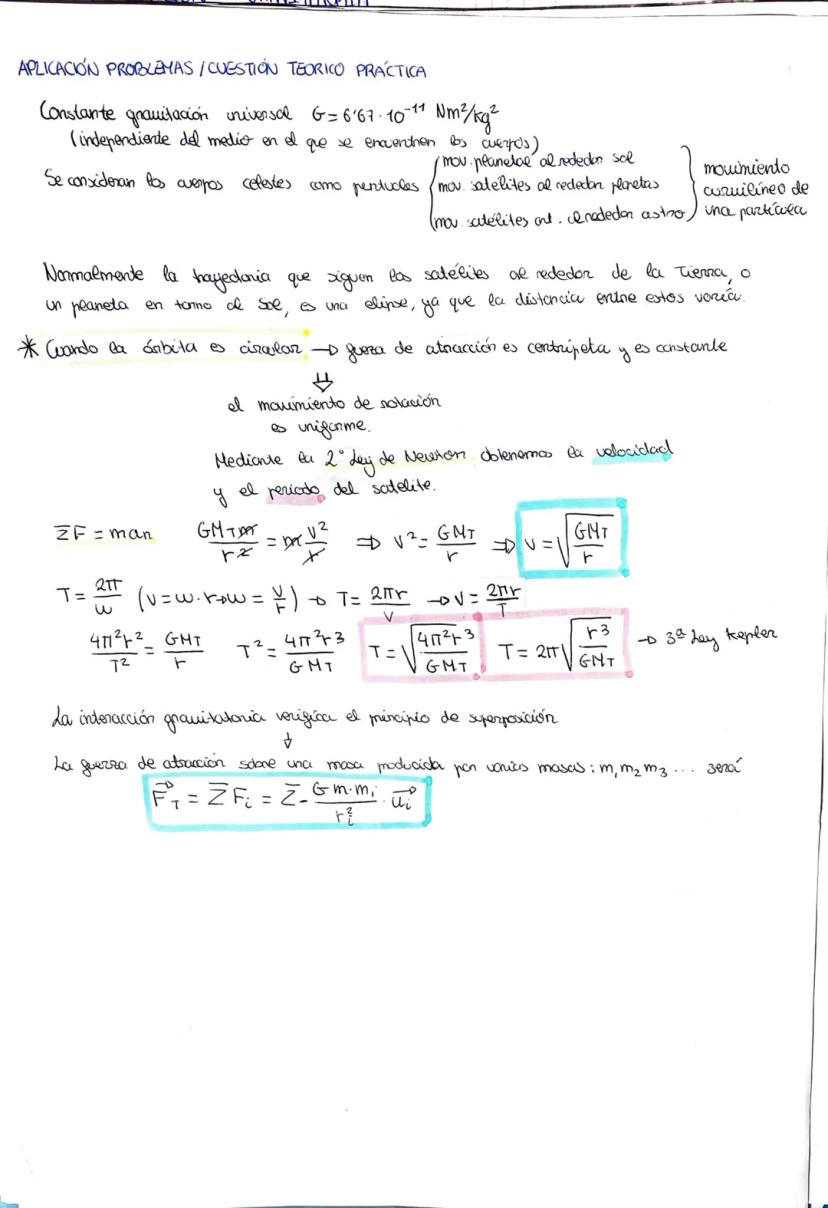 APLICACIÓN PROBLEMAS / CUESTIÓN TEORICO PRÁCTICA
Constante gravitación universal G = 6'67 · 10⁻¹¹ Nm²/kg²
(independiente del medio en el que se encuentren los cuerpos)
Se consideran los cuerpos celestes como puntuales
mov. planetas alrededor sol
mov. satélites alrededor planetas
mov. satélites art. alrededor astro
movimiento
curvilíneo de
una partícula
Normalmente la trayectoria que siguen los satélites al rededor de la Tierra, o
un planeta en torno al Sol, es una elipse, ya que la distancia entre estos varía.
* Cuando la órbita es circular → fuerza de atracción es centrípeta y es constante
⇓
el movimiento de rotación
es uniforme.
Mediante la 2ª Ley de Newton obtenemos la velocidad
y el período del satélite.
ΣF = m·an GMT·m/r² = m v²/r ⇒ v² = GMT/r ⇒ v = √(GMT/r)
T = 2π/ω (v = ω·r → ω = v/r) → T = 2πr/v → v = 2πr/T
4π²r²/T² = GMT/r T² = 4π²r³/GMT T = √(4π²r³/GMT) T = 2π√(r³/GMT) → 3ª Ley Kepler
La interacción gravitatoria verifica el principio de superposición
↓
La fuerza de atracción sobre una masa producida por varias masas: m₁ m₂ m₃ ... será
F⃗T = ΣFi = Σ - G m·mi/ri² · u⃗i